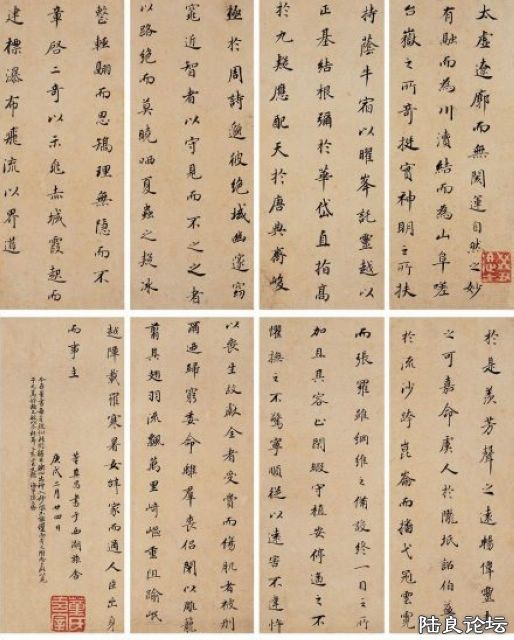 太虛遼廓而無閡運自然之妙
有融而為川瀆結而為山阜嗟
台嶽之所奇挺寔神明之所扶
持蔭牛宿以曜峯託靈越以
正基結根彌於華岱直指高
於九疑應配天於唐典齊峻
極於周詩邈彼絕域幽邃窈
窕近智者以守見而不之之者
以路絕而莫曉哂夏蟲之疑冰
整輕翮而思矯理無隱而不
章啓二奇以示兆赤城霞起而
建標瀑布飛流以界道
於是羨芳聲之遠暢偉靈表
之可嘉命虞人於隴坻詔伯益
於流沙跨崑崙而播弋冠雲霓
而張羅雖綱維之備設終一目之所
加且其容止閑暇守植安停逼之不
懼撫之不驚寧順從以遠害不違忤
以喪生故獻全者受賞而傷肌者被刑
爾迺歸窮委命離羣喪侶閉以雕籠
翦其翅羽流飄萬里崎嶇重阻踰岷
越障載罹寒暑女辭家而適人臣出身
而事主
董其昌書于西湖旅舍
庚戌二月廿四日
陆良论坛